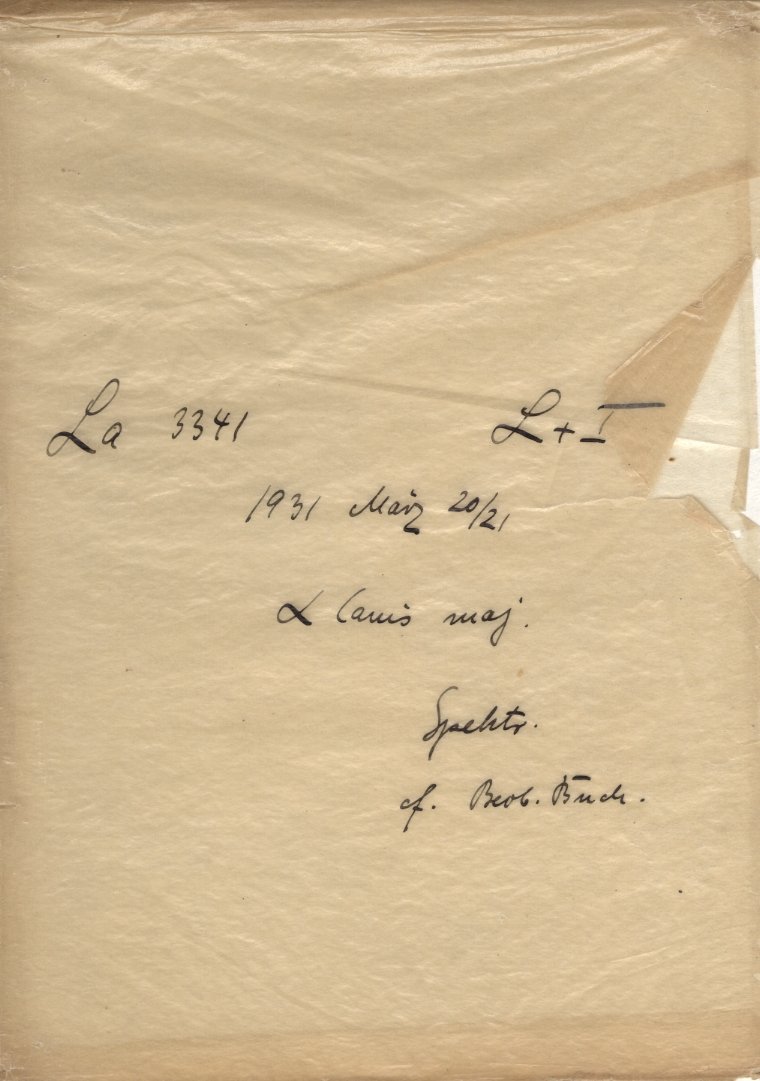 La 3341 L + I
1931 März 20/21
α Canis maj.
Spektr.
cf. Beob. Buch.